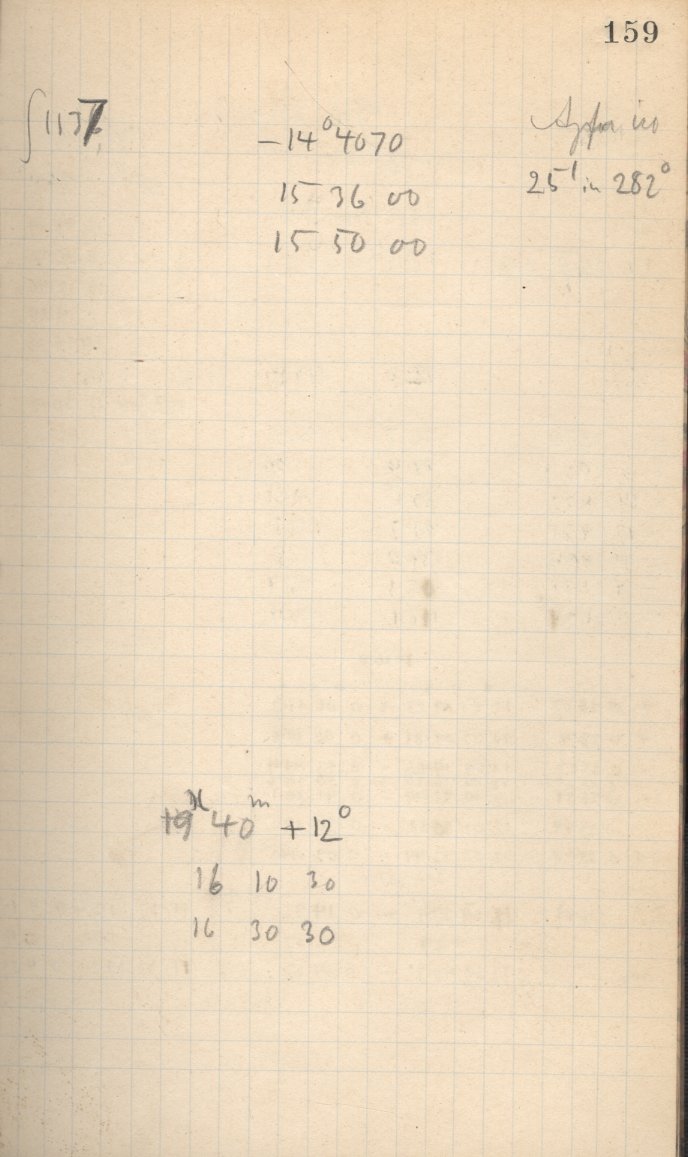 159
∫1137
-14°4070
15 36 00
15 50 00
25' in 282°
19h 40m +12°
16 10 30
16 30 30